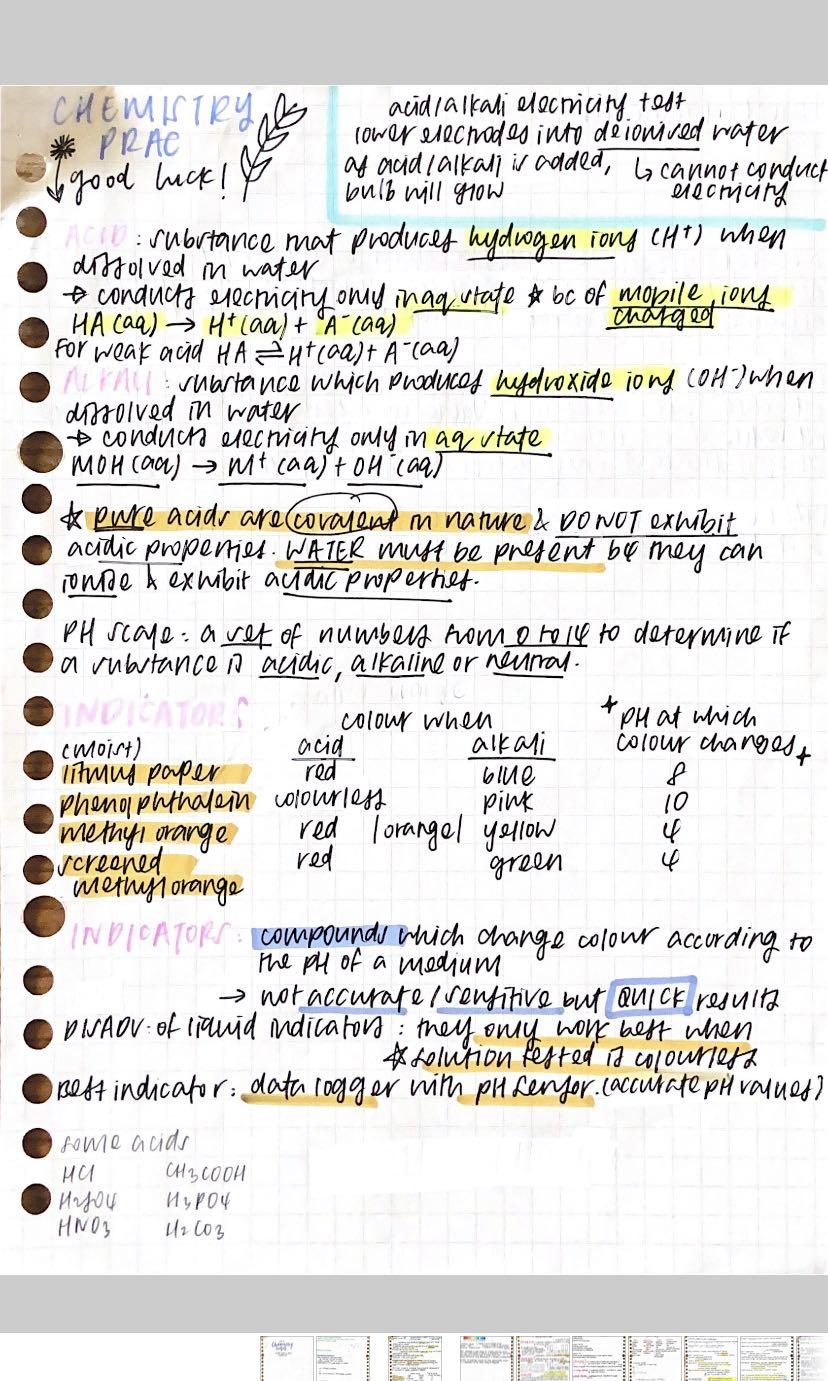 CHEMISTRY
PRAC
good luck!
acid/alkali electricity test
lower electrodes into deionised water
as acid/alkali is added, ↳ cannot conduct
bulb will glow electricity
ACID : substance that produces hydrogen ions (H⁺) when
dissolved in water
→ conducts electricity only in aq state ☆ bc of mobile ions
charged
HA (aq) → H⁺(aq) + A⁻(aq)
For weak acid HA ⇌ H⁺(aq) + A⁻(aq)
ALKALI : substance which produces hydroxide ions (OH⁻) when
dissolved in water
→ conducts electricity only in aq state
MOH (aq) → M⁺ (aq) + OH⁻(aq)
☆ pure acids are covalent in nature & DO NOT exhibit
acidic properties. WATER must be present b4 they can
ionise & exhibit acidic properties.
PH scale : a set of numbers from 0 to 14 to determine if
a substance is acidic, alkaline or neutral.
INDICATORS
colour when + PH at which
(moist) acid alkali colour changes +
litmus paper red blue 8
phenolphthalein colourless pink 10
methyl orange red |orange| yellow 4
screened red green 4
methyl orange
INDICATORS : compounds which change colour according to
the pH of a medium
→ not accurate / sensitive but QUICK results
DISADV: of liquid indicators : they only work best when
☆ solution tested is colourless
Best indicator : data logger with pH sensor. (accurate pH values)
some acids
HCl CH3COOH
H2SO4 H3PO4
HNO3 H2CO3